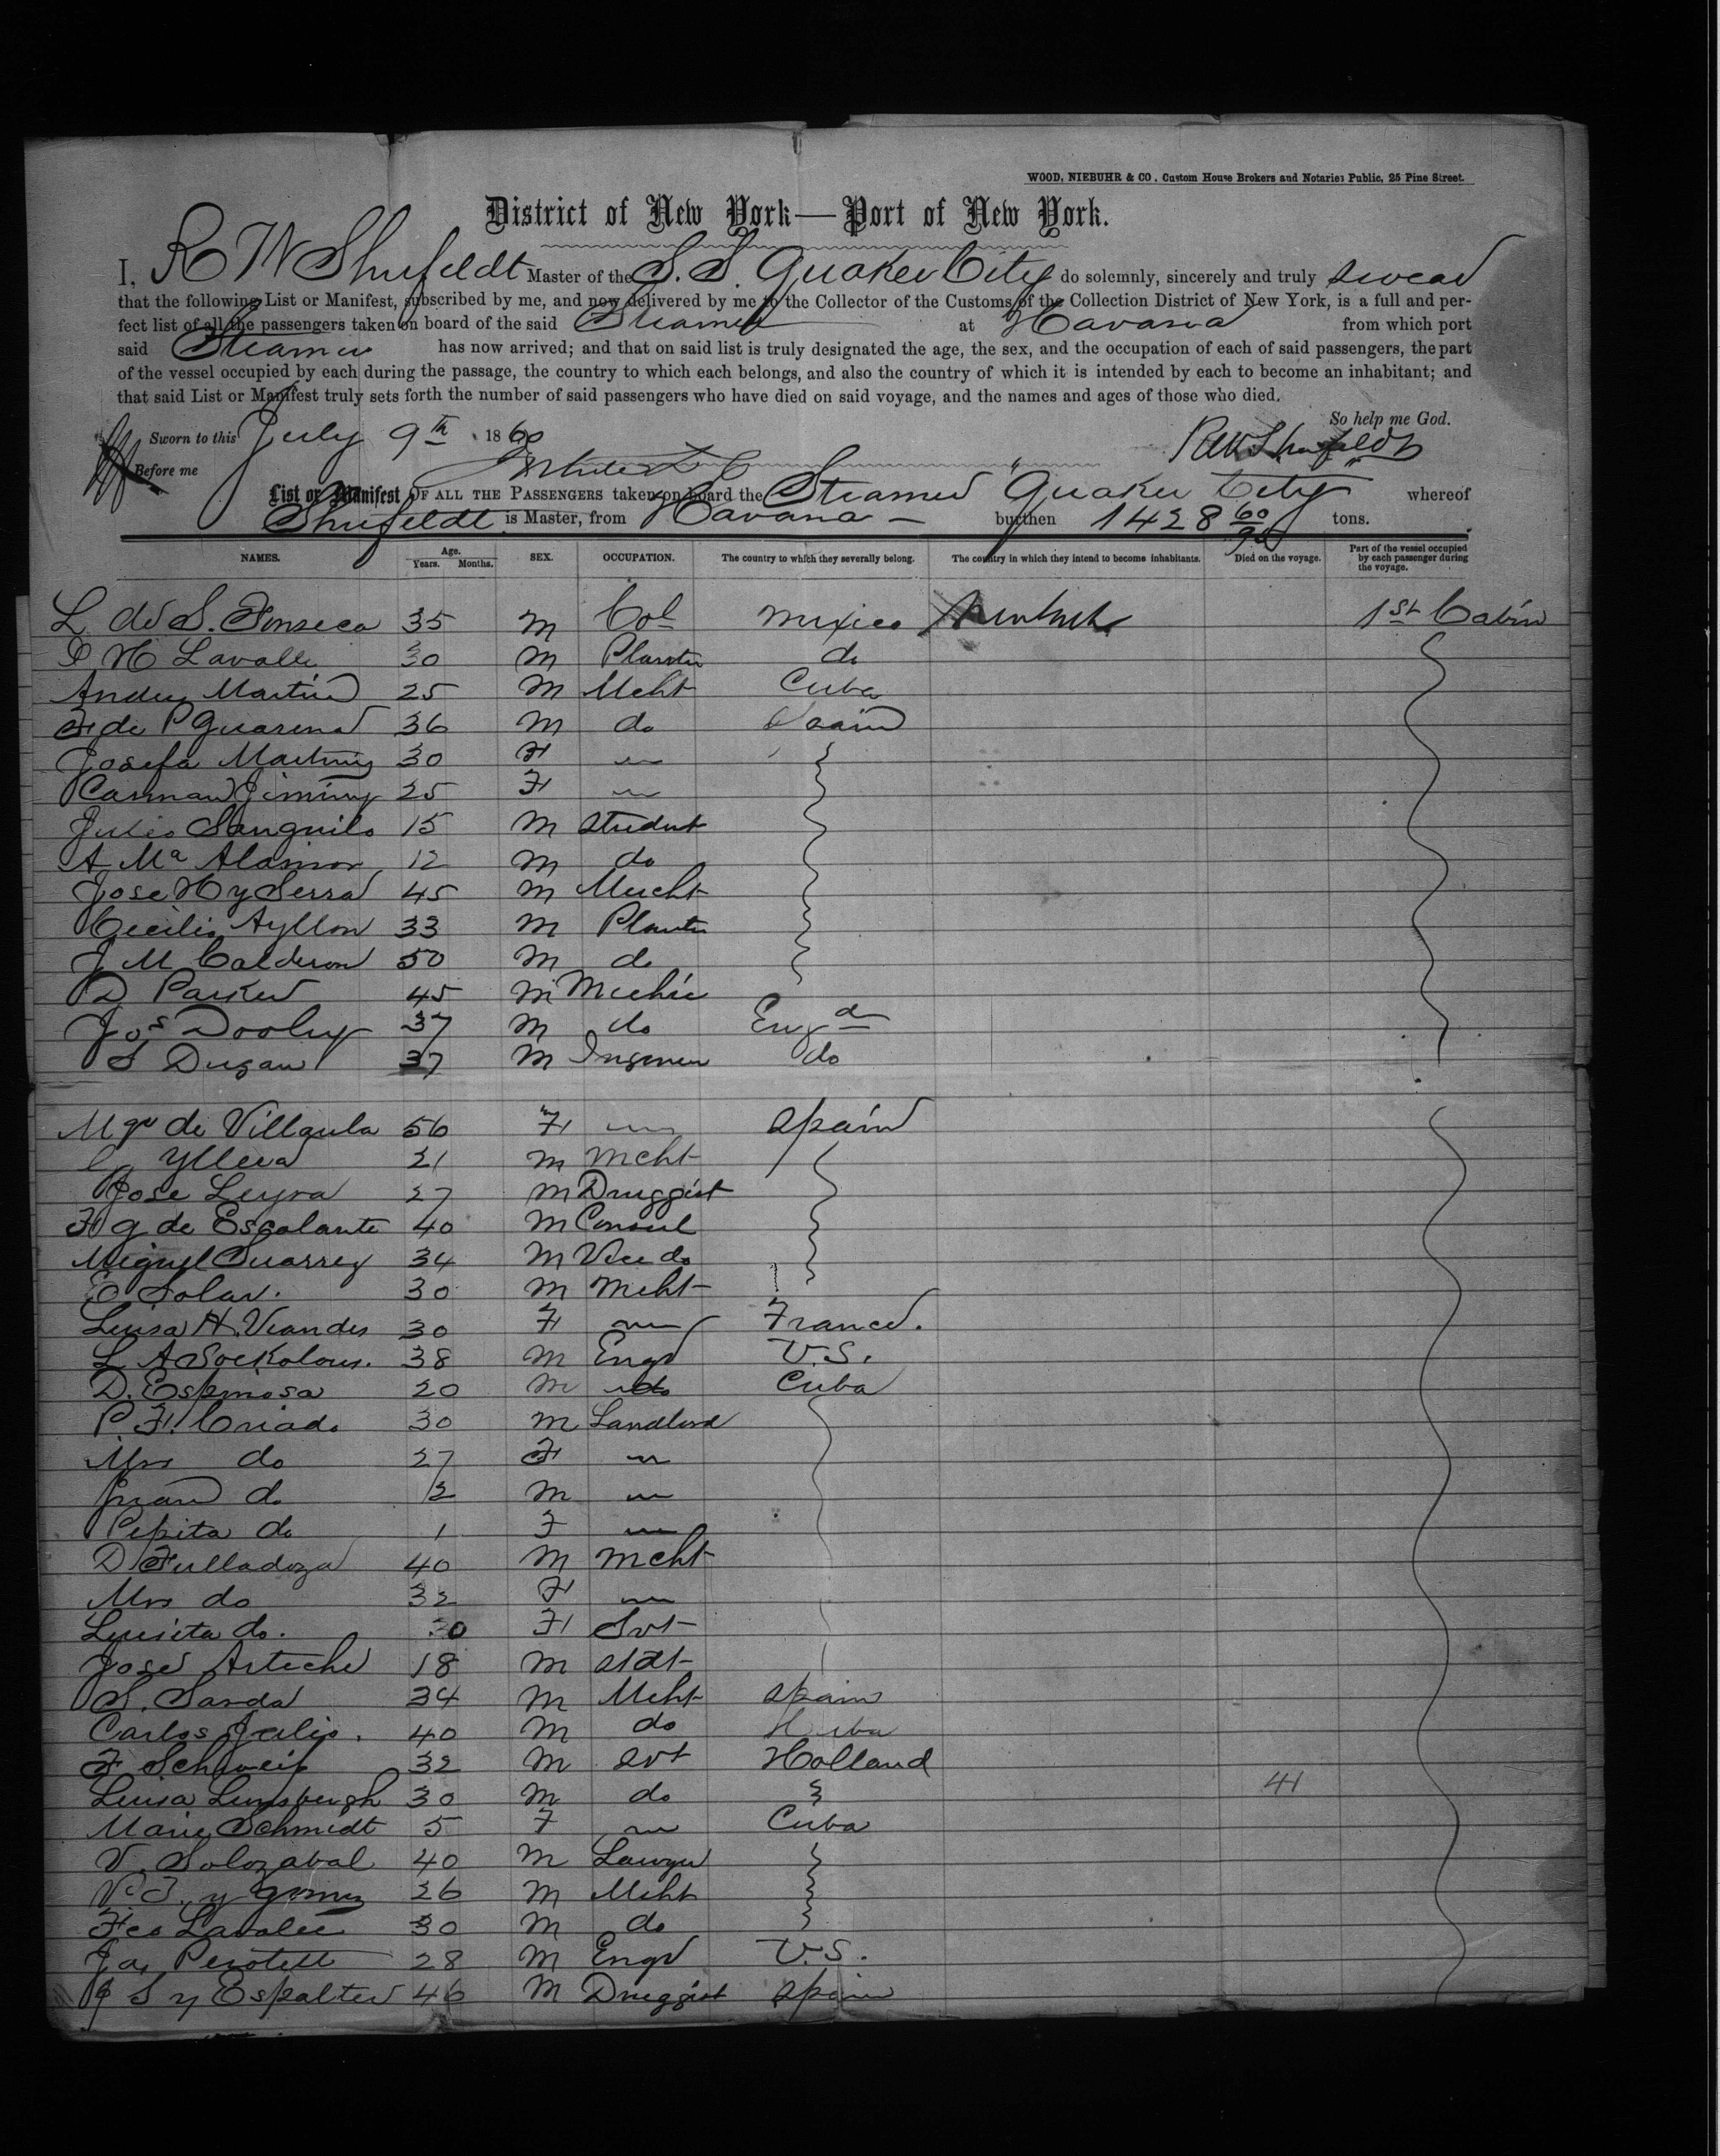 WOOD, NIEBUHR & CO. Custom House Brokers and Notaries Public, 25 Pine Street.
District of New York—Port of New York.
I, R W Shufeldt Master of the S. S. Quaker City do solemnly, sincerely and truly swear
that the following List or Manifest, subscribed by me, and now delivered by me to the Collector of the Customs of the Collection District of New York, is a full and per-
fect list of all the passengers taken on board of the said Steamer at Havana from which port
said Steamer has now arrived; and that on said list is truly designated the age, the sex, and the occupation of each of said passengers, the part
of the vessel occupied by each during the passage, the country to which each belongs, and also the country of which it is intended by each to become an inhabitant; and
that said List or Manifest truly sets forth the number of said passengers who have died on said voyage, and the names and ages of those who died.
So help me God.
Sworn to this July 9th 1860 RW Shufeldt
Before me
List or Manifest OF ALL THE PASSENGERS taken on board the Steamer Quaker City whereof
Shufeldt is Master, from Havana — burthen 1428 60/95 tons.
NAMES. Age. Years. Months. SEX. OCCUPATION. The country to which they severally belong. The country in which they intend to become inhabitants. Died on the voyage. Part of the vessel occupied by each passenger during the voyage.
L de S. Fonseca 35 M Col Mexico 1st Cabin
P H Lavalle 30 M Planter do
Andrew Martin 25 M Mcht Cuba
F de P Guarena 36 M do Spain
Josefa Martinez 30 F
Carman Jiminez 25 F
Julio Sanguilo 15 M Student
A Ma 12 M do
Jose H y Serra 45 M Mercht
Cecilio Ayllon 33 M Planter
J M Calderon 50 M do
D Parker 45 M Mechic
Jos Dooley 37 M do Engd
S Dugan 37 M do
de Villaula 56 F Spain
21 M Mcht
Jose Leyva 27 M Druggist
F G de Escalante 40 M Consul
Miguel Suarrez 34 M Vice do
E Solar. 30 M Mcht
Luisa H. Viandes 30 F France.
L A Sockolous. 38 M Engr U.S.
D. Espinosa 20 M do Cuba
P. F. Criado 30 M Landlord
Mrs do 27 F
Juan do 2 M
Pepita do 1 F
D Fulladoza 40 M Mcht
Mrs do 32 F
Luisita do. 30 F Svt
Jose Arteche 18 M Stdt
S. Sarda 34 M Mcht Spain
Carlos Julio. 40 M do Cuba
F Schweip 32 M Svt Holland
Luisa Lunsbergh 30 M do 41
Marie Schmidt 5 F Cuba
V. Solozabal 40 M Lawyer
y Gomez 26 M Mcht
Fco Lavalee 30 M do
Jas Perotett 28 M Engr U.S.
J S y Espalter 46 M Druggist Spain